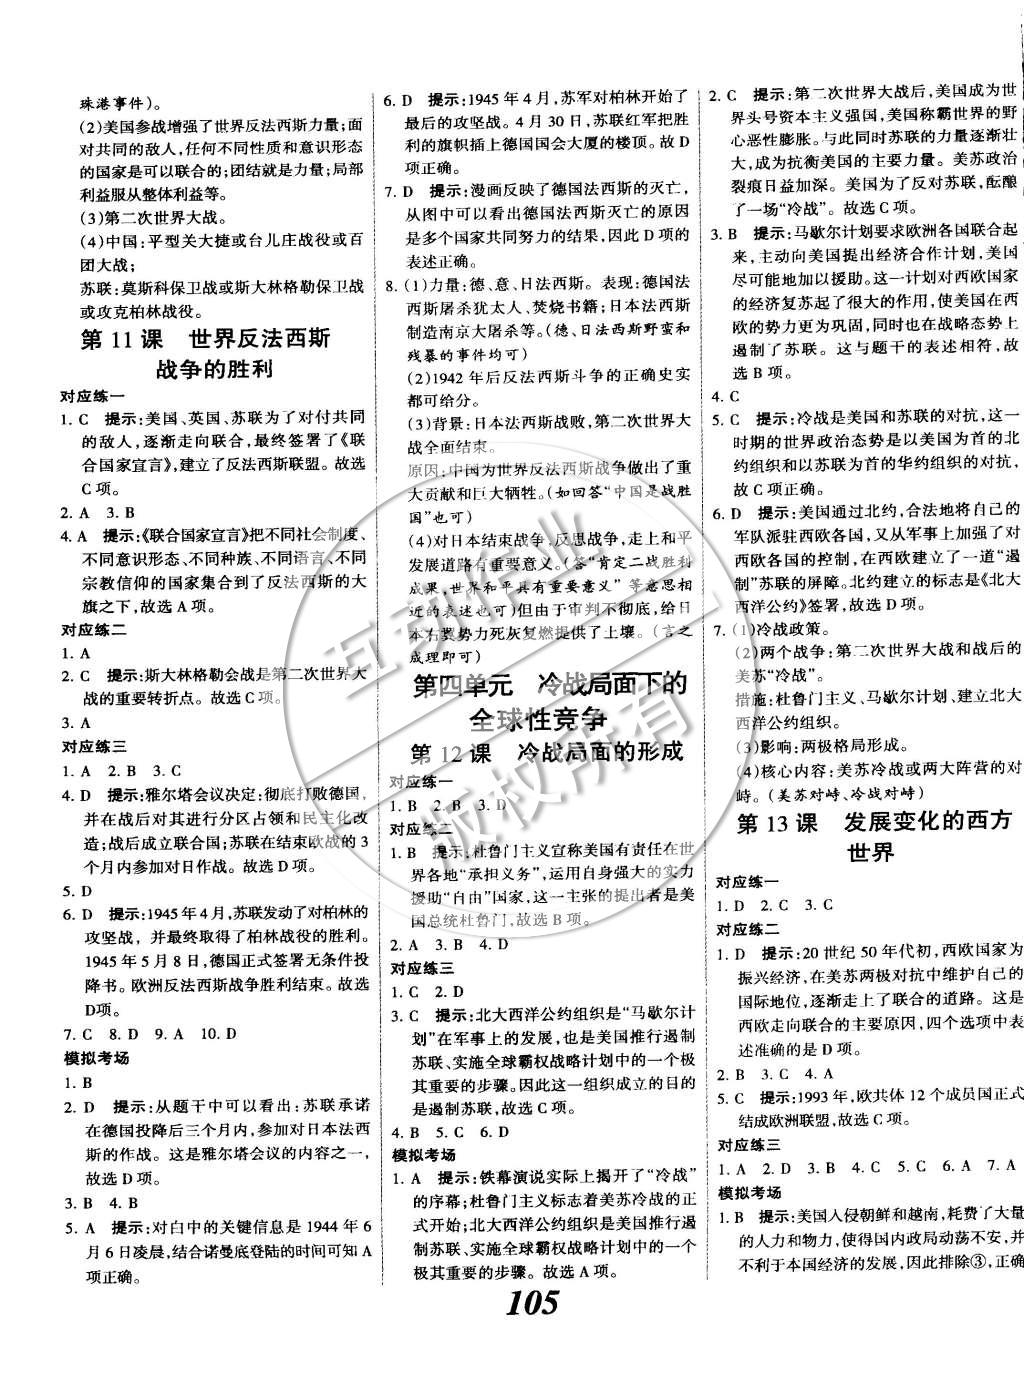 珠港事件)。
(2)美国参战增强了世界反法西斯力量;面
对共同的敌人,任何不同性质和意识形态
的国家是可以联合的;团结就是力量;局部
利益服从整体利益等。
(3)第二次世界大战。
(4)中国:平型关大捷或台儿庄战役或百
团大战;
苏联:莫斯科保卫战或斯大林格勒保卫战
或攻克柏林战役。
第 11 课 世界反法西斯
战争的胜利
对应练一
1. C 提示:美国、英国、苏联为了对付共同
的敌人,逐渐走向联合,最终签署了《联
合国家宣言》,建立了反法西斯联盟。故选
C项。
2. A 3. B
4. A 提示:《联合国家宣言》把不同社会制度、
不同意识形态、不同种族、不同语言、不同
宗教信仰的国家集合到了反法西斯的大
旗之下,故选 A 项。
对应练二
1. A
2. C 提示:斯大林格勒会战是第二次世界大
战的重要转折点。故选 C项。
3. A
对应练三
1. A 2. B 3. C
4. D 提示:雅尔塔会议决定:彻底打败德国,
并在战后对其进行分区占领和民主化改
造;战后成立联合国;苏联在结束欧战的 3
个月内参加对日作战。故选 D项。
5. D
6. D 提示:1945 年 4 月,苏联发动了对柏林的
攻坚战,并最终取得了柏林战役的胜利。
1945 年 5 月 8 日,德国正式签署无条件投
降书。欧洲反法西斯战争胜利结束。故选
D项。
7. C 8. D 9. A 10. D
模拟考场
1. B
2. D 提示:从题干中可以看出:苏联承诺
在德国投降后三个月内,参加对日本法西
斯的作战。这是雅尔塔会议的内容之一,
故选 D项。
3. B 4. B
5. A 提示:对白中的关键信息是 1944 年 6
月 6 日凌晨,结合诺曼底登陆的时间可知 A
项正确。
6. D 提示:1945 年 4 月,苏军对柏林开始了
最后的攻坚战。4 月 30 日,苏联红军把胜
利的旗帜插上德国国会大厦的楼顶。故 D
项正确。
7. D 提示:漫画反映了德国法西斯的灭亡,
从图中可以看出德国法西斯灭亡的原因
是多个国家共同努力的结果,因此 D 项的
表述正确。
8. (1)力量:德、意、日法西斯。表现:德国法
西斯屠杀犹太人、焚烧书籍;日本法西斯
制造南京大屠杀等。(德、日法西斯野蛮和
残暴的事件均可)
(2)1942 年后反法西斯斗争的正确史实
都可给分。
(3)背景:日本法西斯战败,第二次世界大
战全面结束。
原因:中国为世界反法西斯战争做出了重
大贡献和巨大牺牲。(如回答“中国是战胜
国”也可)
(4)对日本结束战争、反思战争、走上和平
发展道路有重要意义。(答“肯定二战胜利
成果,世界和平具有重要意义”等意思相
近的表述也可)但由于审判不彻底,给日
本右翼势力死灰复燃提供了上壤。(言之
成理即可)
第四单元 冷战局面下的
全球性竞争
第 12 课 冷战局面的形成
对应练一
1. B 2. B 3. D
对应练二
1. B 提示:杜鲁门主义宣称美国有责任在世
界各地“承担义务”,运用自身强大的实力
援助“自由”国家,这一主张的提出者是美
国总统杜鲁门,故选 B项。
2. A 3. B 4. D
对应练三
1. C 2. D
3. C 提示:北大西洋公约组织是“马歇尔计
划”在军事上的发展,也是美国推行遏制
苏联、实施全球霸权战略计划中的一个极
其重要的步骤。因此这一组织成立的目的
是遏制苏联,故选 C项。
4. B 5. C 6. D
模拟考场
1. A 提示:铁幕演说实际上揭开了“冷战”
的序幕;杜鲁门主义标志着美苏冷战的正
式开始;北大西洋公约组织是美国推行遏
制苏联、实施全球霸权战略计划中的一个
极其重要的步骤。故选 A 项。
2. C 提示:第二次世界大战后,美国成为世
界头号资本主义强国,美国称霸世界的野
心恶性膨胀。与此同时苏联的力量逐渐壮
大,成为抗衡美国的主要力量。美苏政治
裂痕日益加深。美国为了反对苏联,酝酿
了一场“冷战”。故选 C 项。
3. B 提示:马歇尔计划要求欧洲各国联合起
来,主动向美国提出经济合作计划,美国
尽可能地加以援助。这一计划对西欧国家
的经济复苏起了很大的作用,使美国在西
欧的势力更为巩固,同时也在战略态势上
遏制了苏联。这与题干的表述相符,故
选 B 项。
4. C
5. C 提示:冷战是美国和苏联的对抗,这一
时期的世界政治态势是以美国为首的北
约组织和以苏联为首的华约组织的对抗,
故 C项正确。
6. D 提示:美国通过北约,合法地将自己的
军队派驻西欧各国,又从军事上加强了对
西欧各国的控制,在西欧建立了一道“遏
制”苏联的屏障。北约建立的标志是《北大
西洋公约》签署,故选 D项。
7. (1)冷战政策。
(2)两个战争:第二次世界大战和战后的
美苏“冷战”。
措施:杜鲁门主义、马歇尔计划、建立北大
西洋公约组织。
(3)影响:两极格局形成。
(4)核心内容:美苏冷战或两大阵营的对
峙。(美苏对峙、冷战对峙)
第 13 课 发展变化的西方
世界
对应练一
1. D 2. C 3. C
对应练二
1. D 提示:20 世纪 50 年代初,西欧国家为
振兴经济,在美苏两极对抗中维护自己的
国际地位,逐渐走上了联合的道路。这是
西欧走向联合的主要原因,四个选项中表
述准确的是 D 项。
2. B 3. C 4. A
5. C 提示:1993 年,欧共体 12 个成员国正式
结成欧洲联盟,故选 C项。
对应练三
1. A 2. D 3. B 4. C 5. C 6. A 7. A
模拟考场
1. B 提示:美国入侵朝鲜和越南,耗费了大量
的人力和物力,使得国内政局动荡不安,并
不利于本国经济的发展,因此排除③,正确
105
互动作业
版权所有